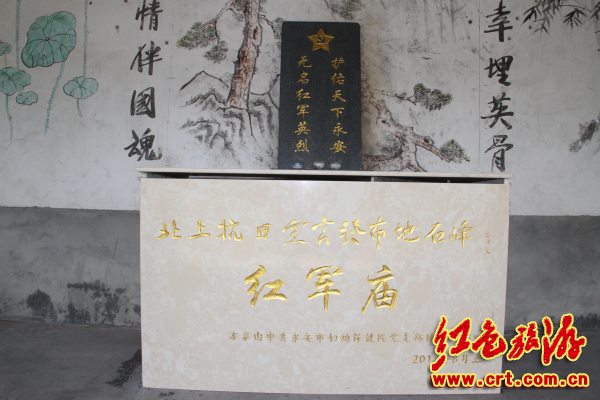 情伴國魂
幸埋英骨
护佑天下永安
无名红军英烈
北上抗日宣言發布地石峰
红军庙
中共永安市妇幼保健院党支部
红色旅游
www.crt.com.cn